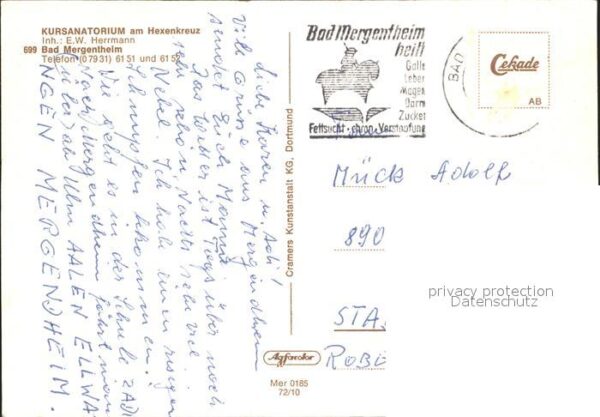 KURSANATORIUM am Hexenkreuz
Inh.: E.W. Herrmann
699 Bad Mergentheim
Telefon (07931) 6151 und 6152
Liebe Karin u. Adi!
Viele Grüsse aus Mergendheim
sendet Euch Mammi
Das Wetter ist Tags über noch
sehr schön, Nachts sehr viel
Nebel. Ich habe einen riesigen
Schnupfen bekommen.
Wie geht es in der Schule? ADI
Nach Mergendheim fährt man
über ULM AALEN ELLWA
NGEN MERGENDHEIM.
Cramers Kunstanstalt KG, Dortmund
Agfacolor
Mer 0185
72/10
Bad Mergentheim
heilt
Galle
Leber
Magen
Darm
Zucker
Fettsucht · chron. Verstopfung
BAD
Cekade
AB
Mück Adolf
890
STA
ROBE
privacy protection
Datenschutz